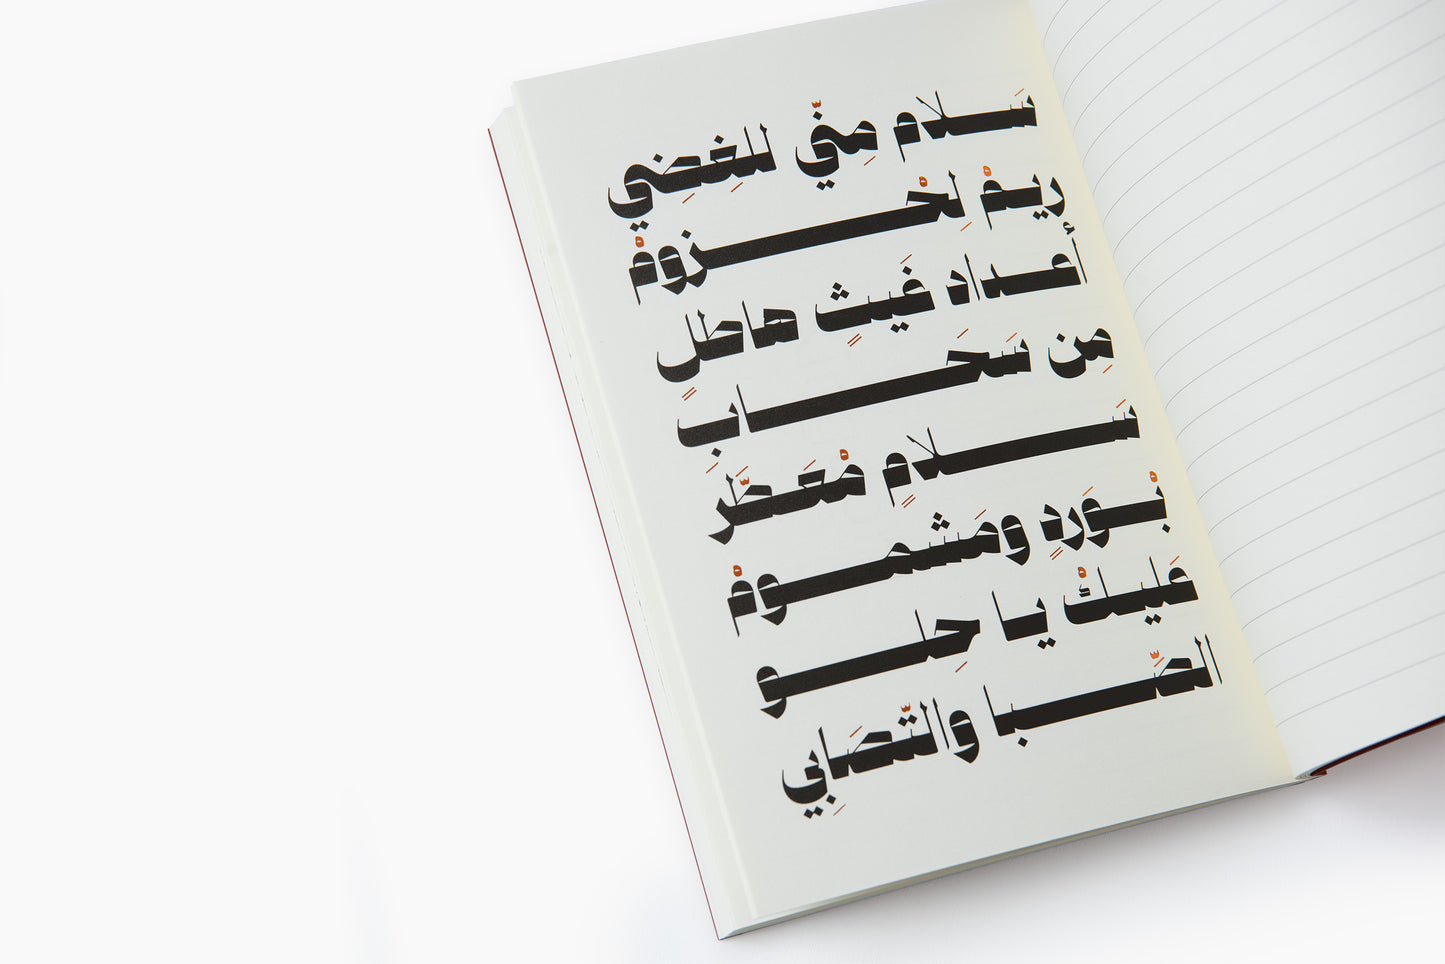 سَلام مِنّي للغِضِي
ريمْ لِخْزومْ
أعداد غَيثٍ هاطلٍ
مِن سَحَابَ
سَلامٍ مْعَطَّر
بْوَردٍ ومَشمومْ
عَليكْ يا حِلو
الصِّبا والتّصَابِي